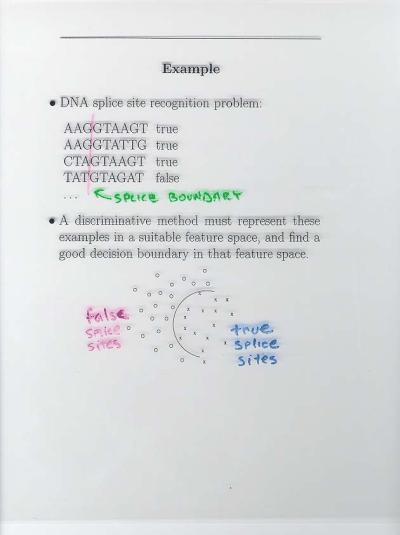 Example
• DNA splice site recognition problem:
AAGGTAAGT true
AAGGTATTG true
CTAGTAAGT true
TATGTAGAT false
...
SPLICE BOUNDARY
• A discriminative method must represent these
examples in a suitable feature space, and find a
good decision boundary in that feature space.
false
splice
sites
true
splice
sites